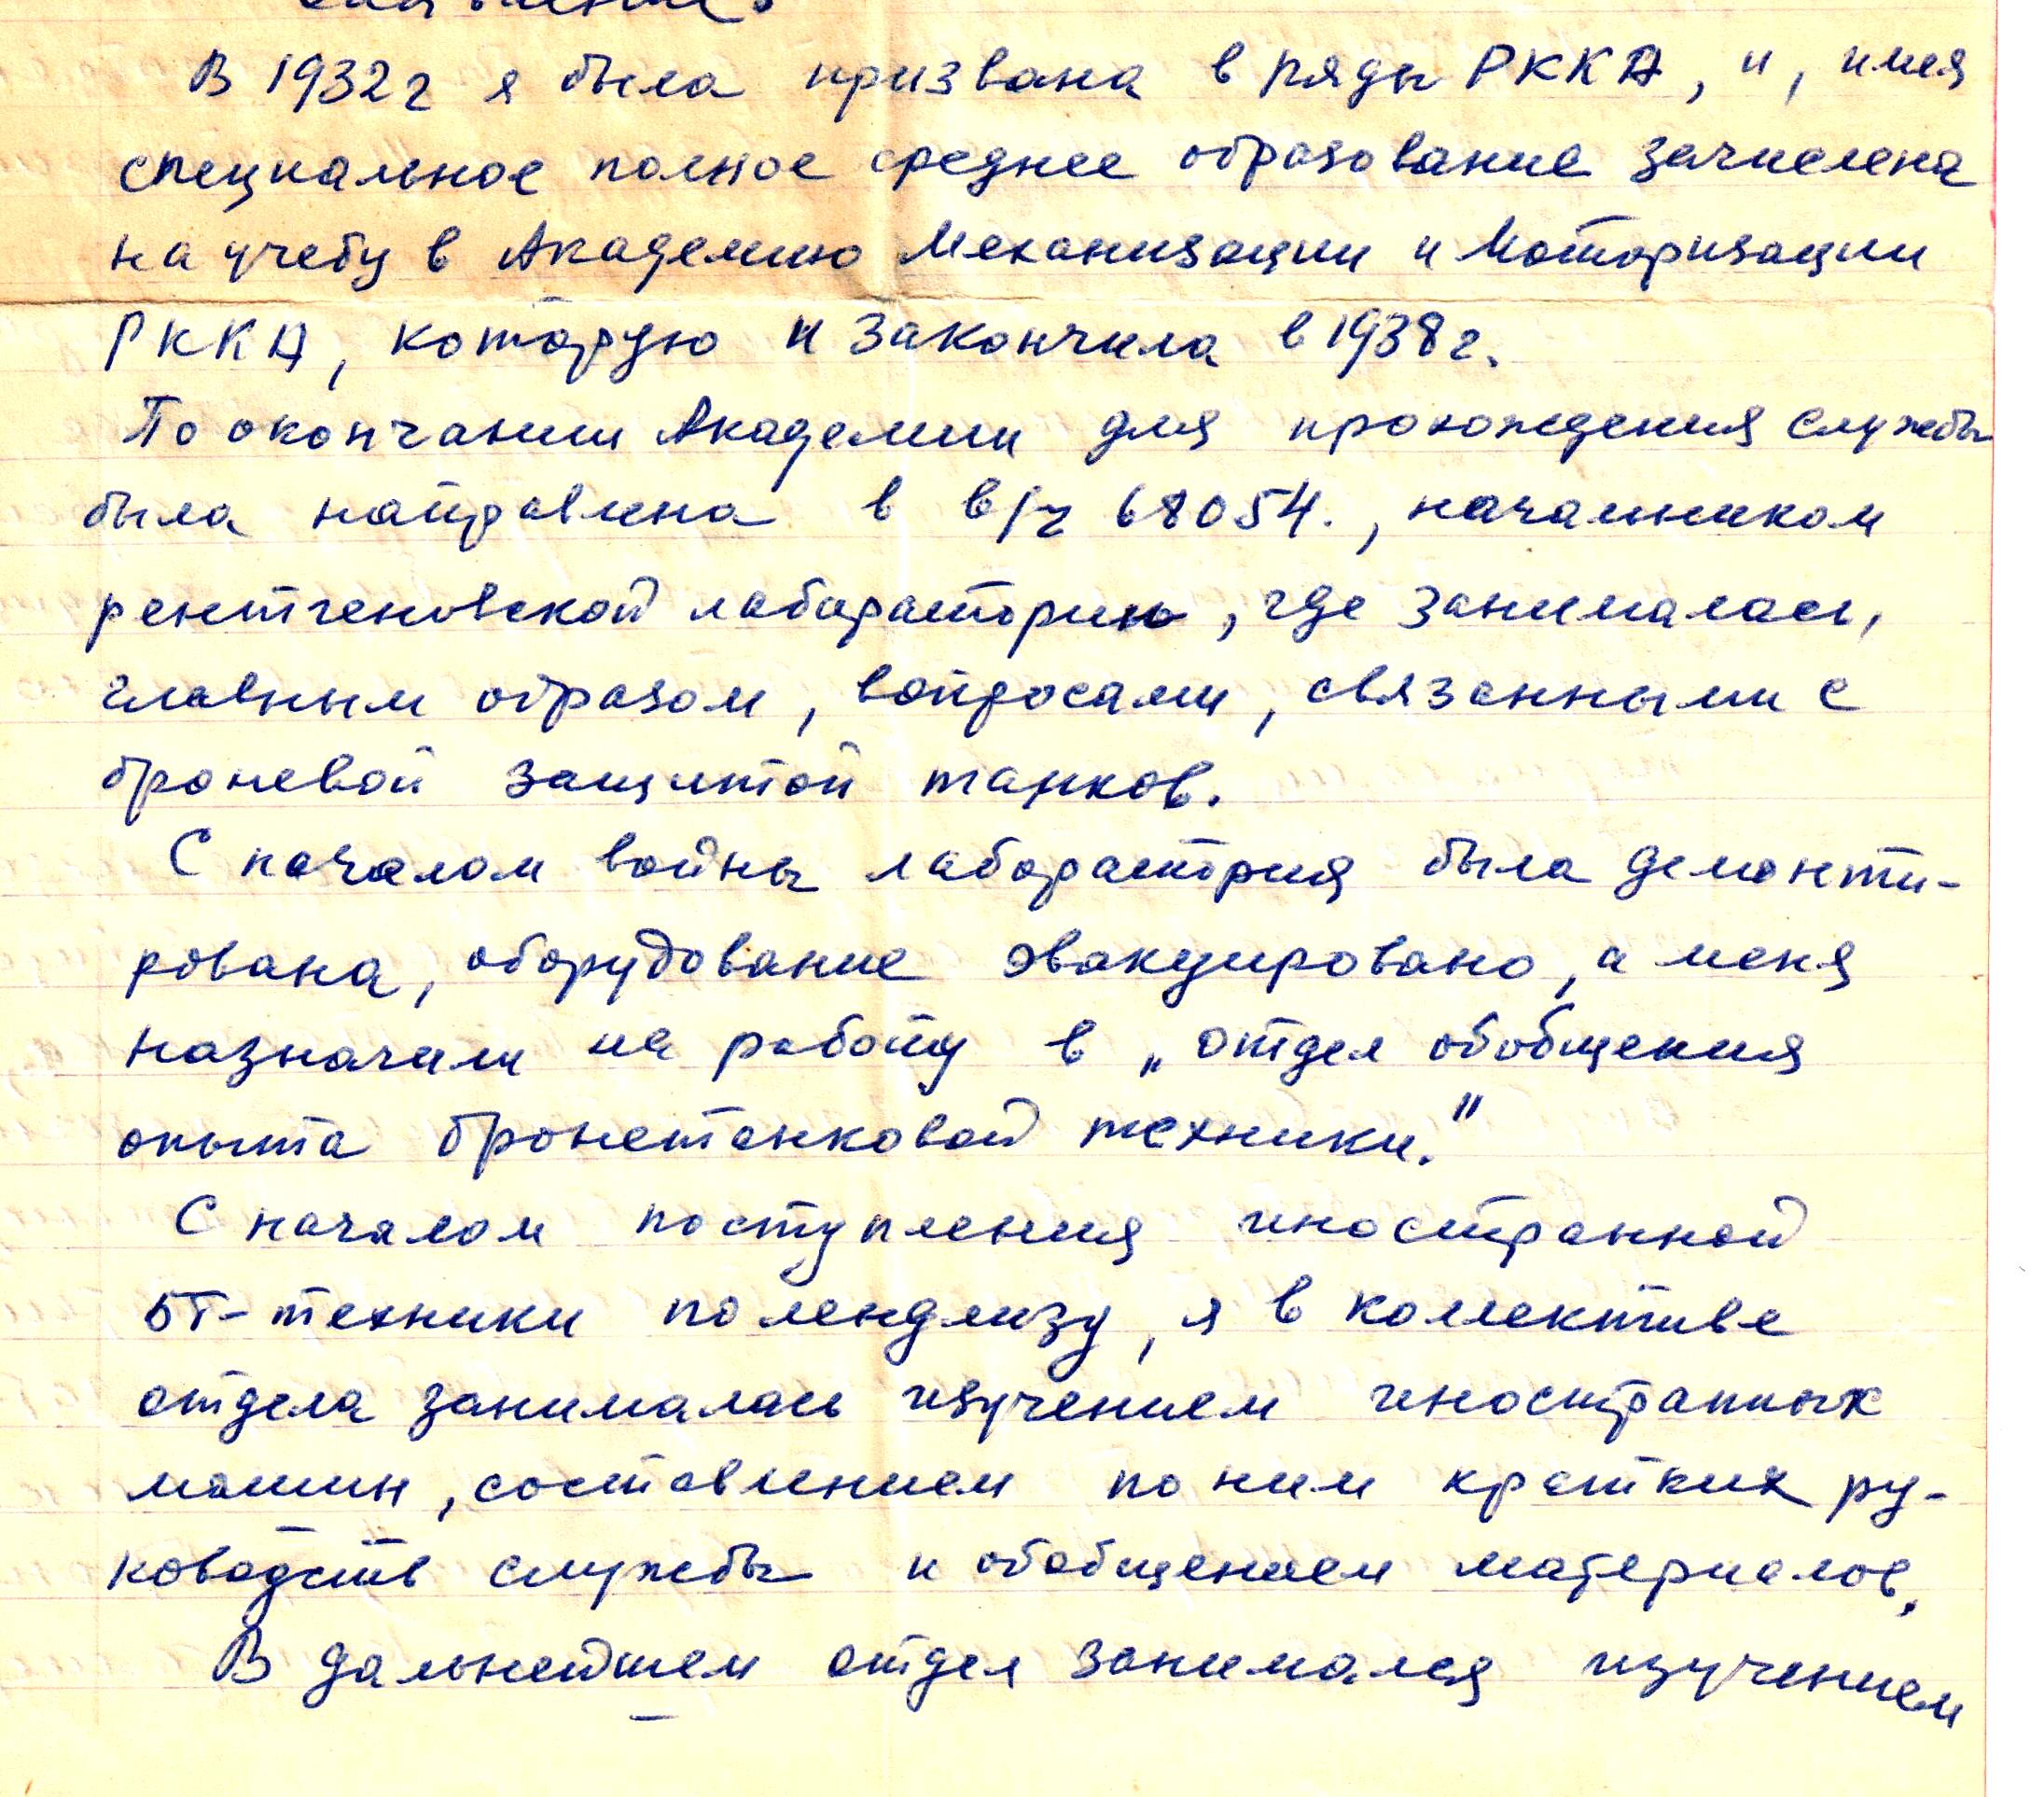 В 1932г я была призвана в ряды РККА, и, имея
специальное полное среднее образование зачислена
на учебу в Академию Механизации и Моторизации
РККА, которую и закончила в 1938г.
По окончании Академии для прохождения службы
была направлена в в/ч 68054., начальником
рентгеновской лаборатории, где занималась,
главным образом, вопросами, связанными с
броневой защитой танков.
С началом войны лаборатория была демонти-
рована, оборудование эвакуировано, а меня
назначили на работу в „отдел обобщения
опыта бронетанковой техники."
С началом поступления иностранной
БТ-техники по лендлизу, я в коллективе
отдела занималась изучением иностранных
машин, составлением по ним кратких ру-
ководств службы и обобщением материалов.
В дальнейшем отдел занимался изучением